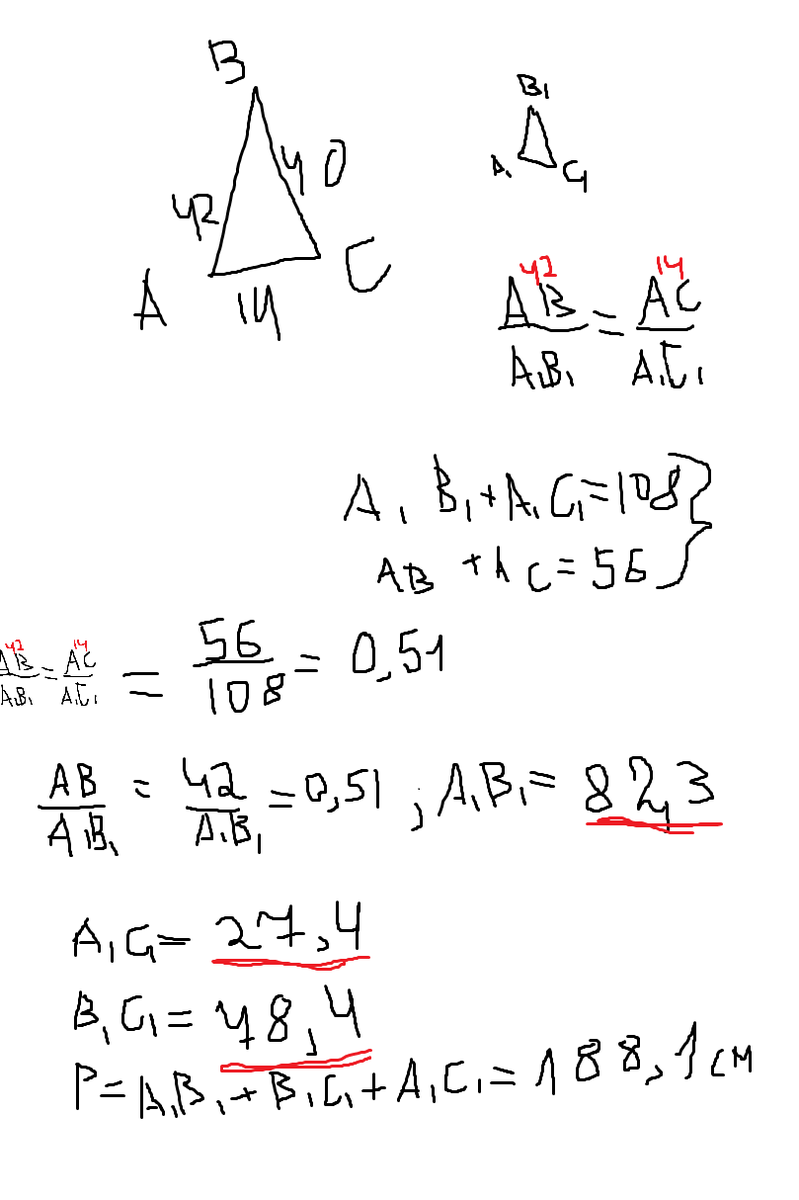 B
B₁
42 40
A₁ C₁
A 14 C
42 14
AB/A₁B₁ = AC/A₁C₁
A₁B₁+A₁C₁=108
AB+AC=56
42 14
AB/A₁B₁ = AC/A₁C₁ = 56/108 = 0,51
AB/A₁B₁ = 42/A₁B₁ = 0,51 ; A₁B₁= 82,3
A₁C₁= 27,4
B₁C₁= 48,4
P=A₁B₁+B₁C₁+A₁C₁=188,1см